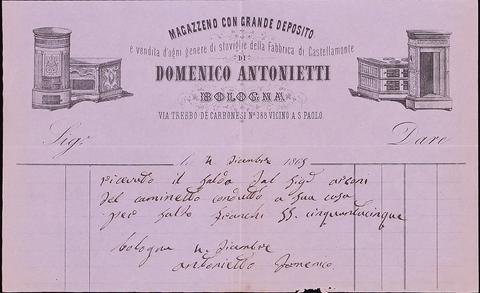 MAGAZZENO CON GRANDE DEPOSITO
e vendita d'ogni genere di stoviglie della Fabbrica di Castellamonte
DI
DOMENICO ANTONIETTI
BOLOGNA
VIA TREBBO DE CARBONESI Nº 388 VICINO A S. PAOLO
Sigr Dare
li 4 Dicembre 1865
ricevuto il saldo dal Sigr
del caminetto condotto a sua casa
per saldo franchi 55. cinquantacinque
bologna 4. Dicembre
antonietti Domenico